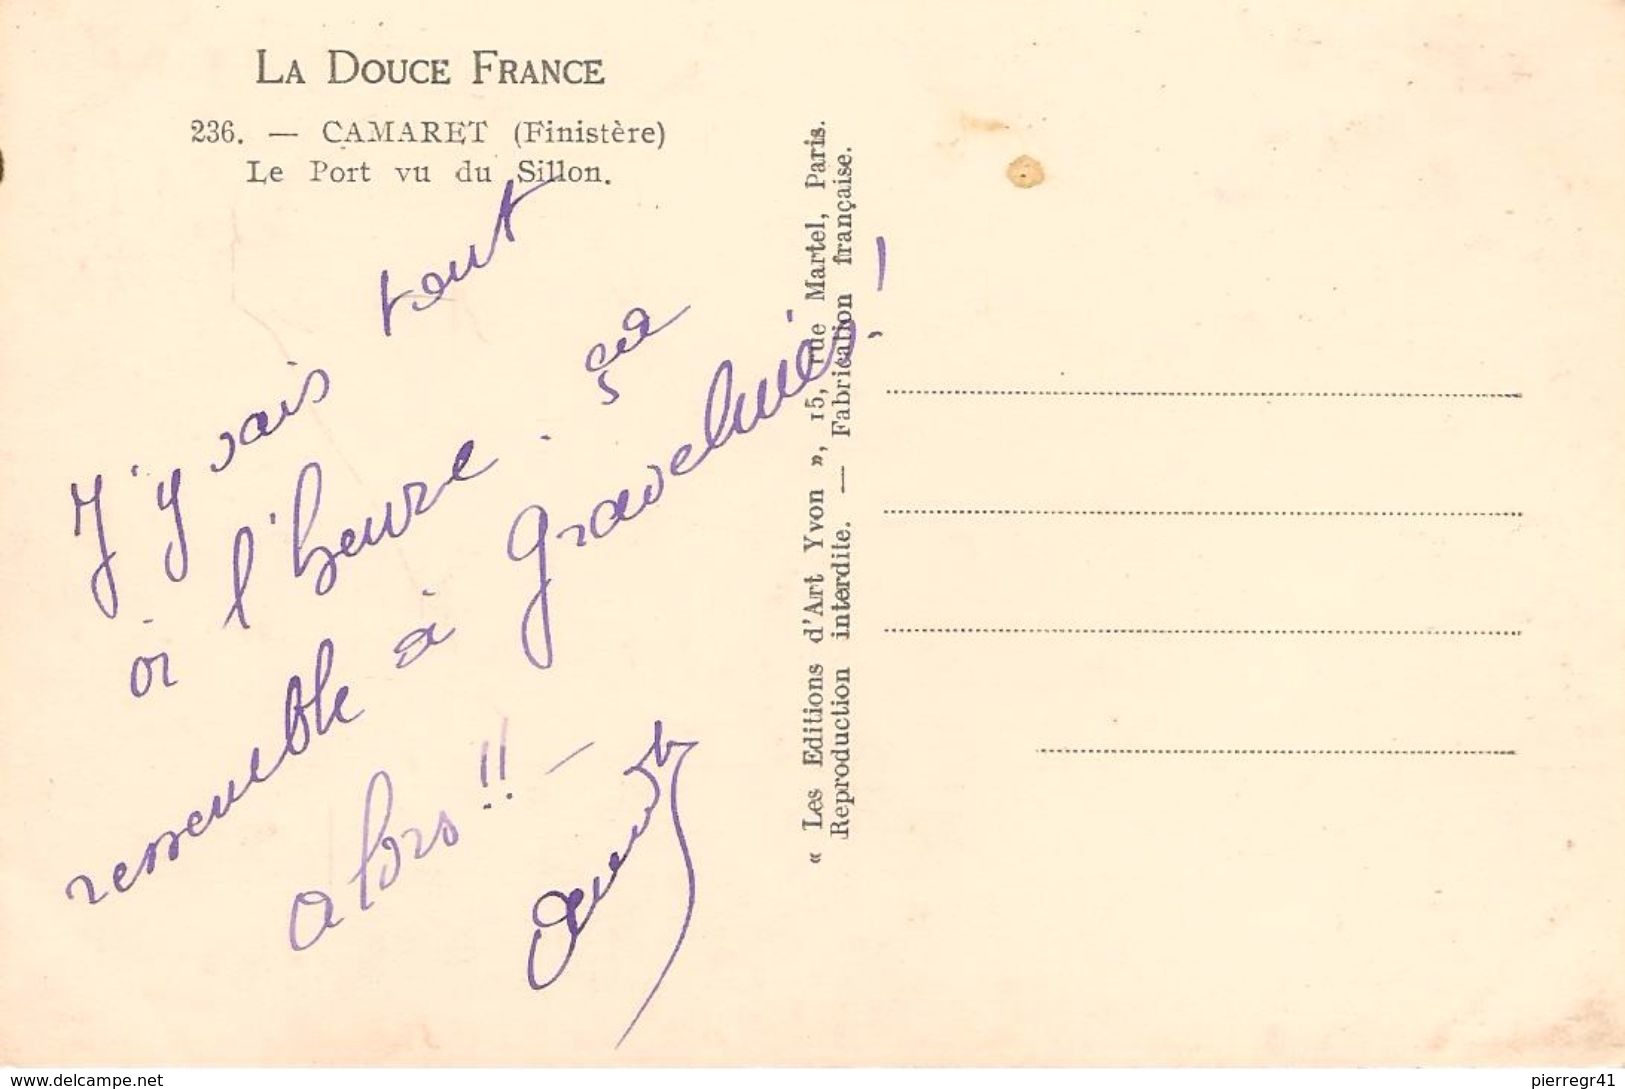 LA DOUCE FRANCE
236. — CAMARET (Finistère)
Le Port vu du Sillon.
J'y vais tout
à l'heure. ça
ressemble à Gravelines !
alors !! —
« Les Editions d'Art Yvon », 15, rue Martel, Paris.
Reproduction interdite. — Fabrication française.
www.delcampe.net
pierregr41